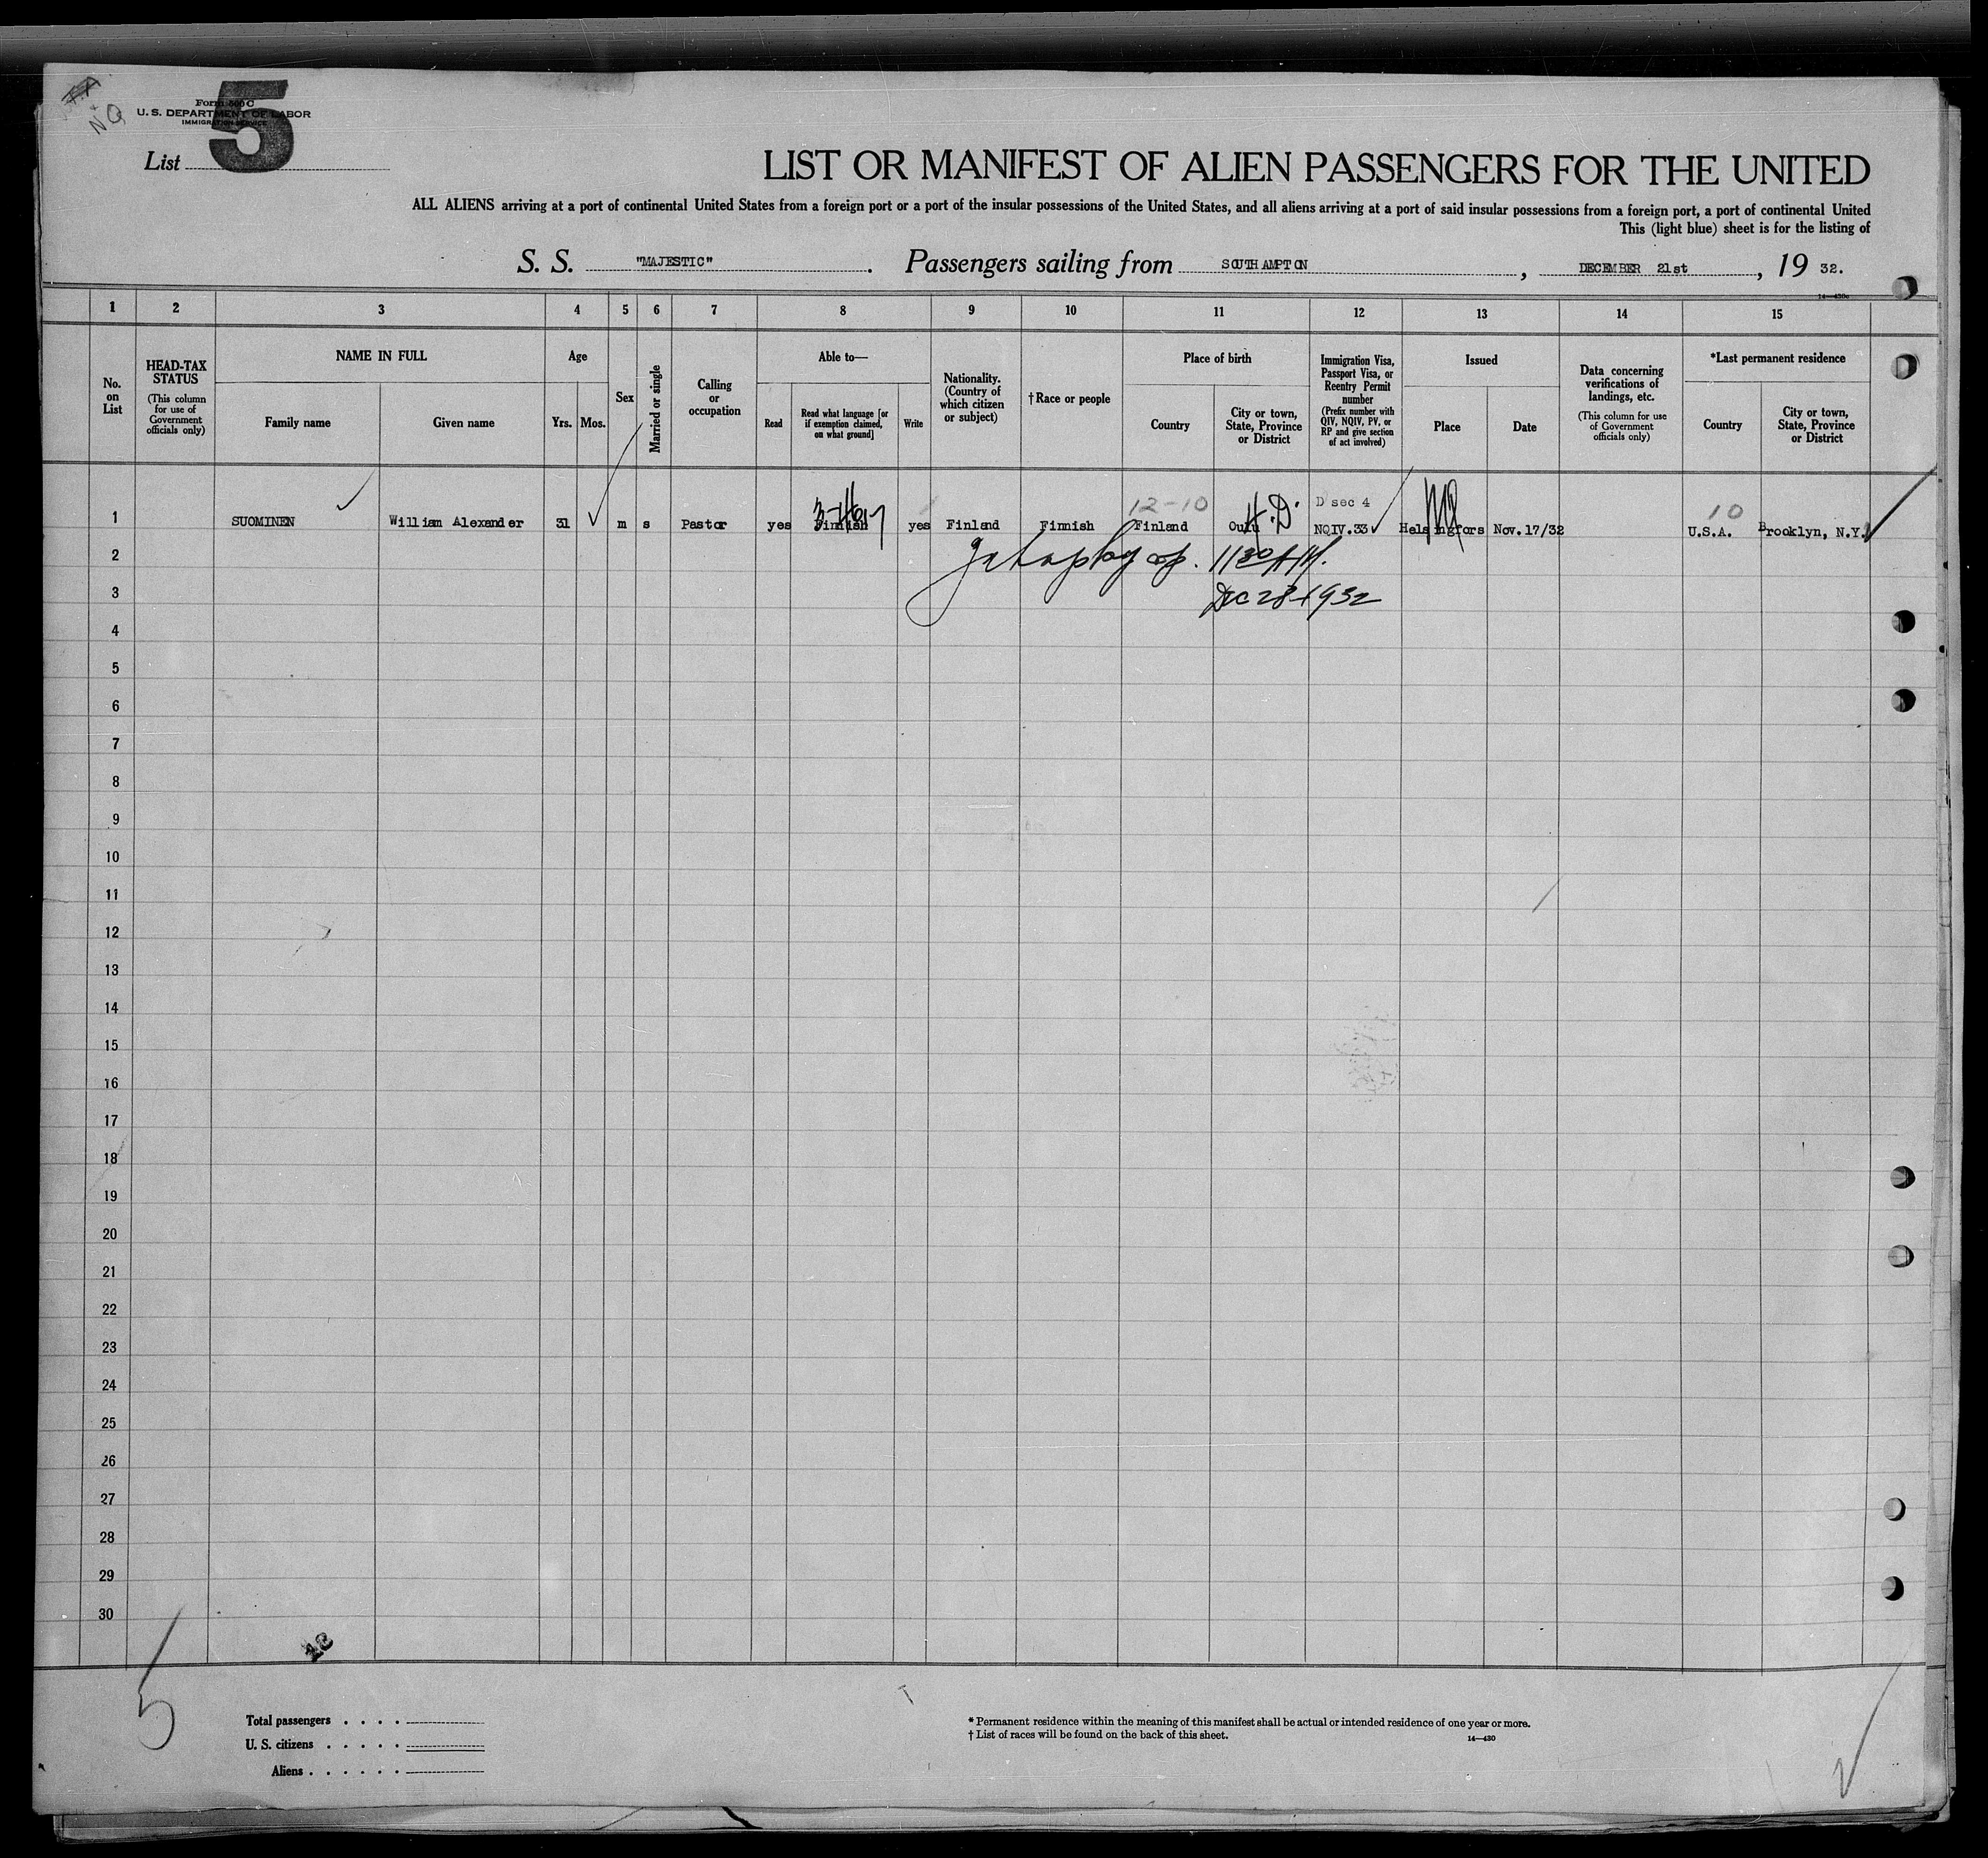 N Q
5
Form 500 C
U. S. DEPARTMENT OF LABOR
IMMIGRATION SERVICE
List
LIST OR MANIFEST OF ALIEN PASSENGERS FOR THE UNITED
ALL ALIENS arriving at a port of continental United States from a foreign port or a port of the insular possessions of the United States, and all aliens arriving at a port of said insular possessions from a foreign port, a port of continental United
This (light blue) sheet is for the listing of
S. S. "MAJESTIC". Passengers sailing from SOUTHAMPTON, DECEMBER 21st, 19 32.
1 2 3 4 5 6 7 8 9 10 11 12 13 14 15
No. on List
HEAD-TAX STATUS (This column for use of Government officials only)
NAME IN FULL
Family name Given name
Age
Yrs. Mos.
Sex
Married or single
Calling or occupation
Able to—
Read Read what language [or if exemption claimed, on what ground] Write
Nationality. (Country of which citizen or subject)
†Race or people
Place of birth
Country City or town, State, Province or District
Immigration Visa, Passport Visa, or Reentry Permit number (Prefix number with QIV, NQIV, PV, or RP and give section of act involved)
Issued
Place Date
Data concerning verifications of landings, etc. (This column for use of Government officials only)
*Last permanent residence
Country City or town, State, Province or District
12-10 H.D. D sec 4 10
1 SUOMINEN William Alexander 31 m s Pastor yes Finnish yes Finland Finnish Finland Oulu NQIV.33 Helsingfors Nov.17/32 U.S.A. Brooklyn, N.Y.
2 1130 AM.
3 Dec 28 1932
4
5
6
7
8
9
10
11
12
13
14
15
16
17
18
19
20
21
22
23
24
25
26
27
28
29
30
5
Total passengers . . . .
U. S. citizens . . . . .
Aliens . . . . . .
* Permanent residence within the meaning of this manifest shall be actual or intended residence of one year or more.
† List of races will be found on the back of this sheet.
14—430